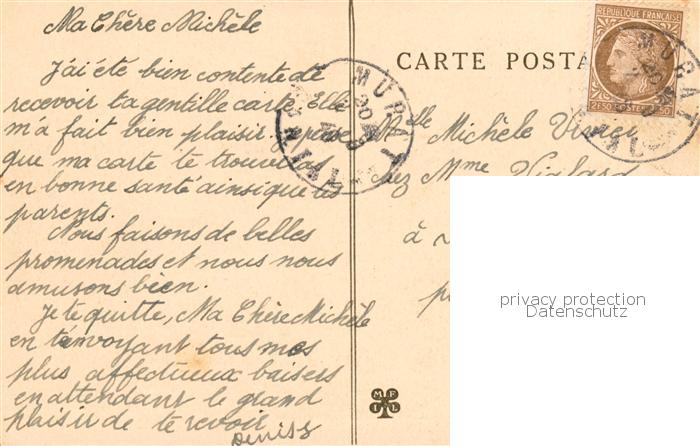 Ma Chère Michèle
J'ai été bien contente de
recevoir ta gentille carte. Elle
m'a fait bien plaisir, je pense
que ma carte te trouveras
en bonne santé ainsi que tes
parents.
Nous faisons de belles
promenades et nous nous
amusons bien.
Je te quitte, Ma Chère Michèle
en t'envoyant tous mes
plus affectueux baisers
en attendant le grand
plaisir de te revoir
Denise
CARTE POSTA
RÉPUBLIQUE FRANÇAISE
2F50 POSTES 2F50
MURAT
CANTAL
MURAT
Melle Michèle
chez Mme Vialard
à
privacy protection
Datenschutz